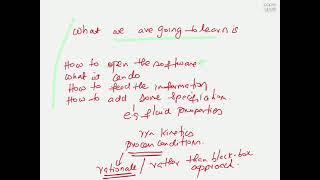 What we are going to learn is
How to open the software
What it can do
How to feed the information
How to add some specification.
eg fluid properties
rxn kinetics
process conditions.
rationale / rather than black-box
approach.